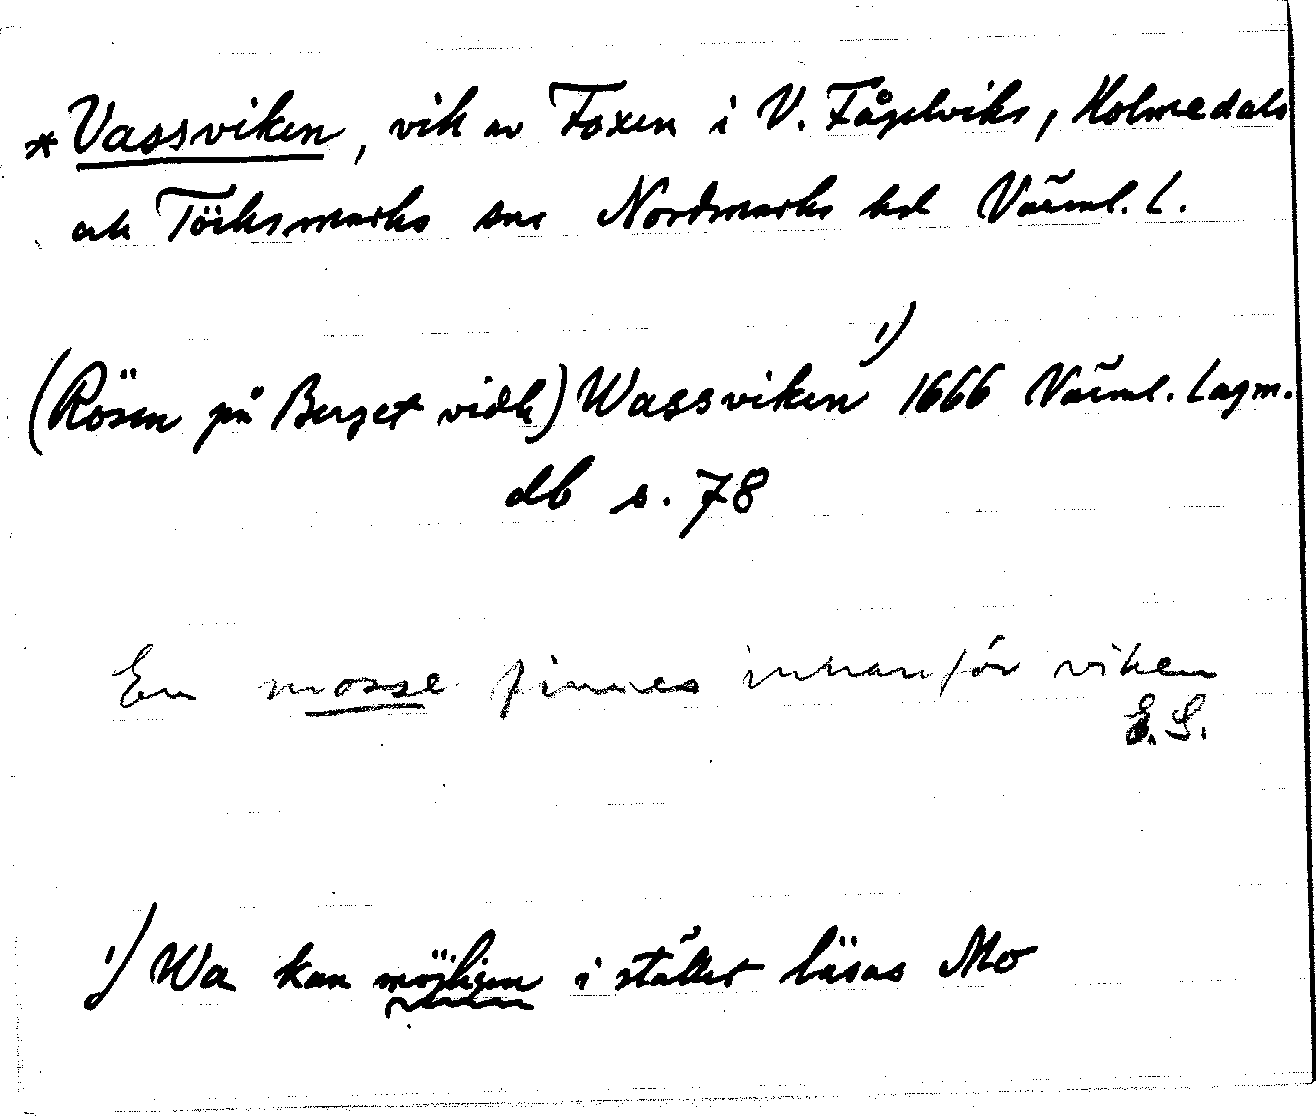 * Vassviken, vik av Foxen i V. Fågelviks, Holmedals
och Töcksmarks snr Nordmarks hd Värml. L.
(Rösen på Berget vidh) Wassviken ¹) 1666 Värml. Lagm.
db s. 78
En mosse finnes innanför viken
E. S.
¹) Wa kan möjligen i stället läsas Mo